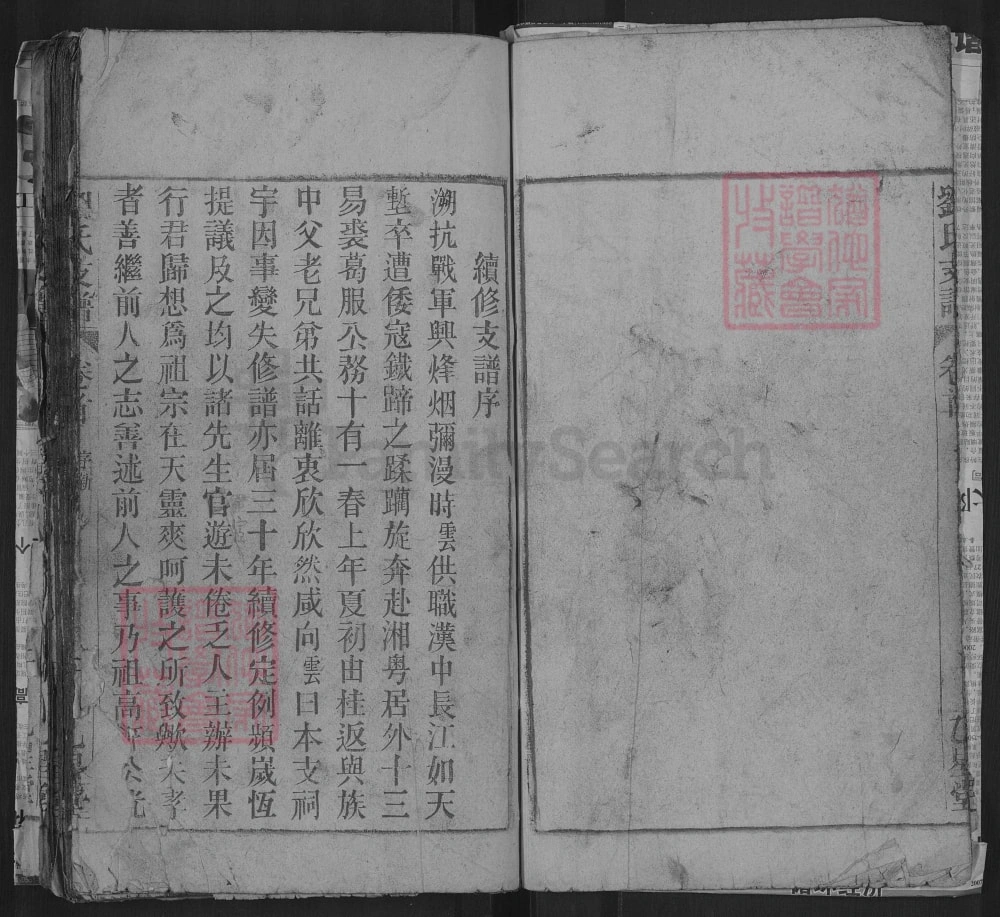 劉氏支譜
卷首
續修支譜序
溯抗戰軍興烽烟彌漫時雲供職漢中長江如天
塹卒遭倭寇鐵蹄之蹂躪旋奔赴湘粵居外十三
易裘葛服公務十有一春上年夏初由桂返與族
中父老兄弟共話離衷欣欣然咸向雲曰本支祠
宇因事變失修譜亦屆三十年續修定例頻歲恆
提議及之均以諸先生官遊未倦乏人主辦未果
行君歸想爲祖宗在天靈爽呵護之所致歟夫孝
者善繼前人之志善述前人之事乃祖高 公光
氏支譜
FamilySearch